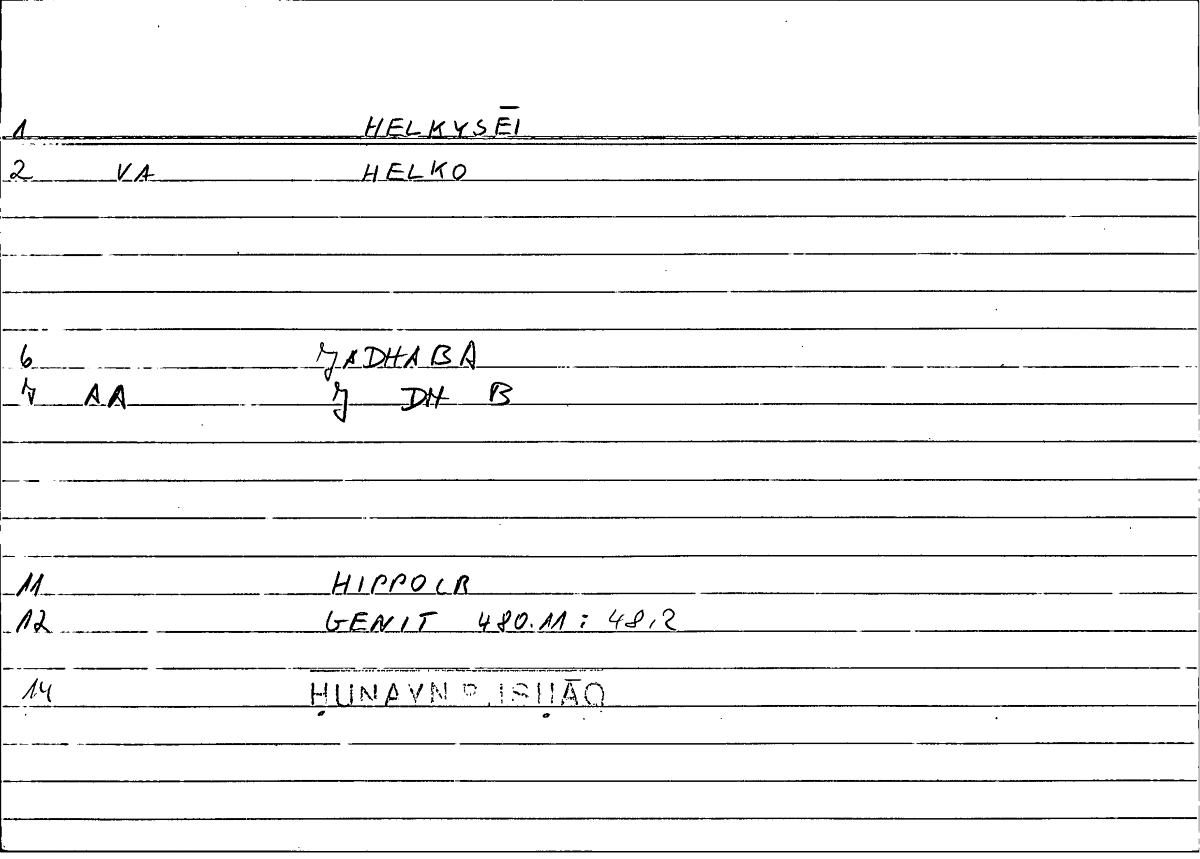 1 HELKYSĒI
2 VA HELKO
6 JADHABA
7 AA J DH B
11 HIPPOCR
12 GENIT 480.11 : 48,2
14 ḤUNAYN B. ISḤĀQ